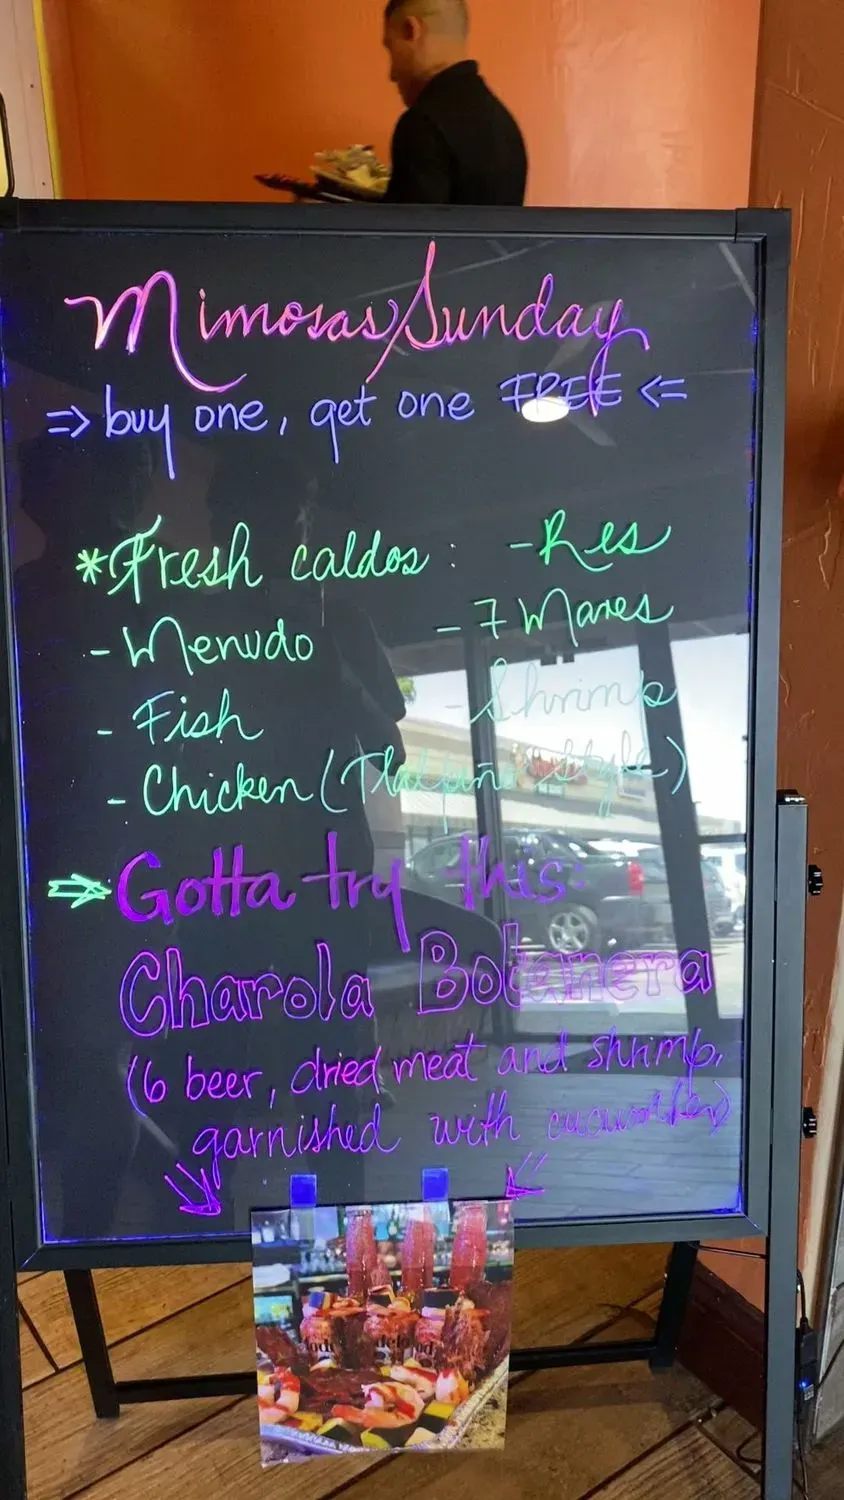 Mimosas Sunday
⇒ buy one, get one FREE ⇐
*Fresh caldos : - Res
- Menudo - 7 Mares
- Fish - Shrimp
- Chicken (Tlalpeño Style)
⇒ Gotta try this:
Charola Botanera
(6 beer, dried meat and shrimp,
garnished with cucumber)